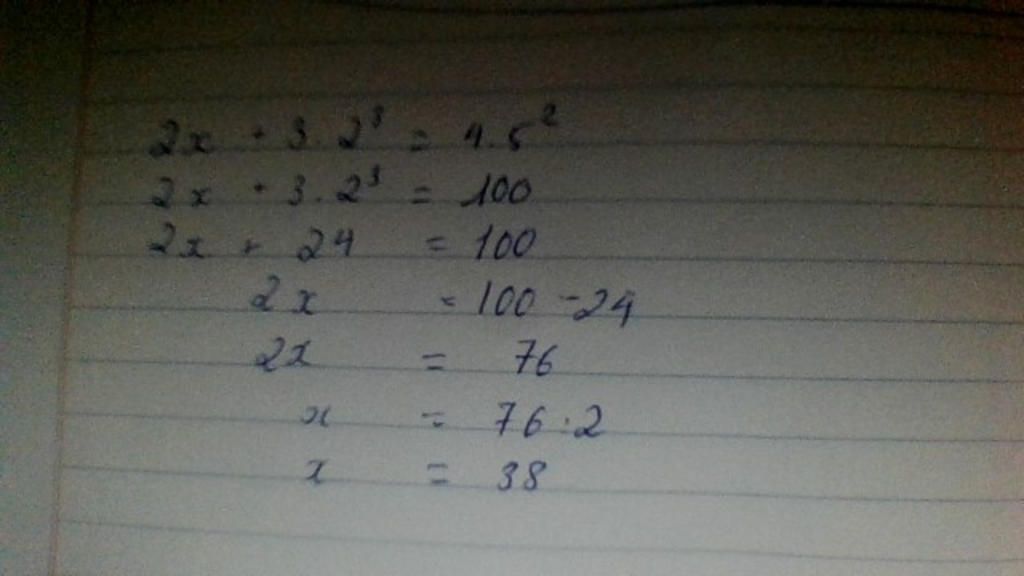 2x + 3.2³ = 4.5²
2x + 3.2³ = 100
2x + 24 = 100
2x = 100 - 24
2x = 76
x = 76:2
x = 38